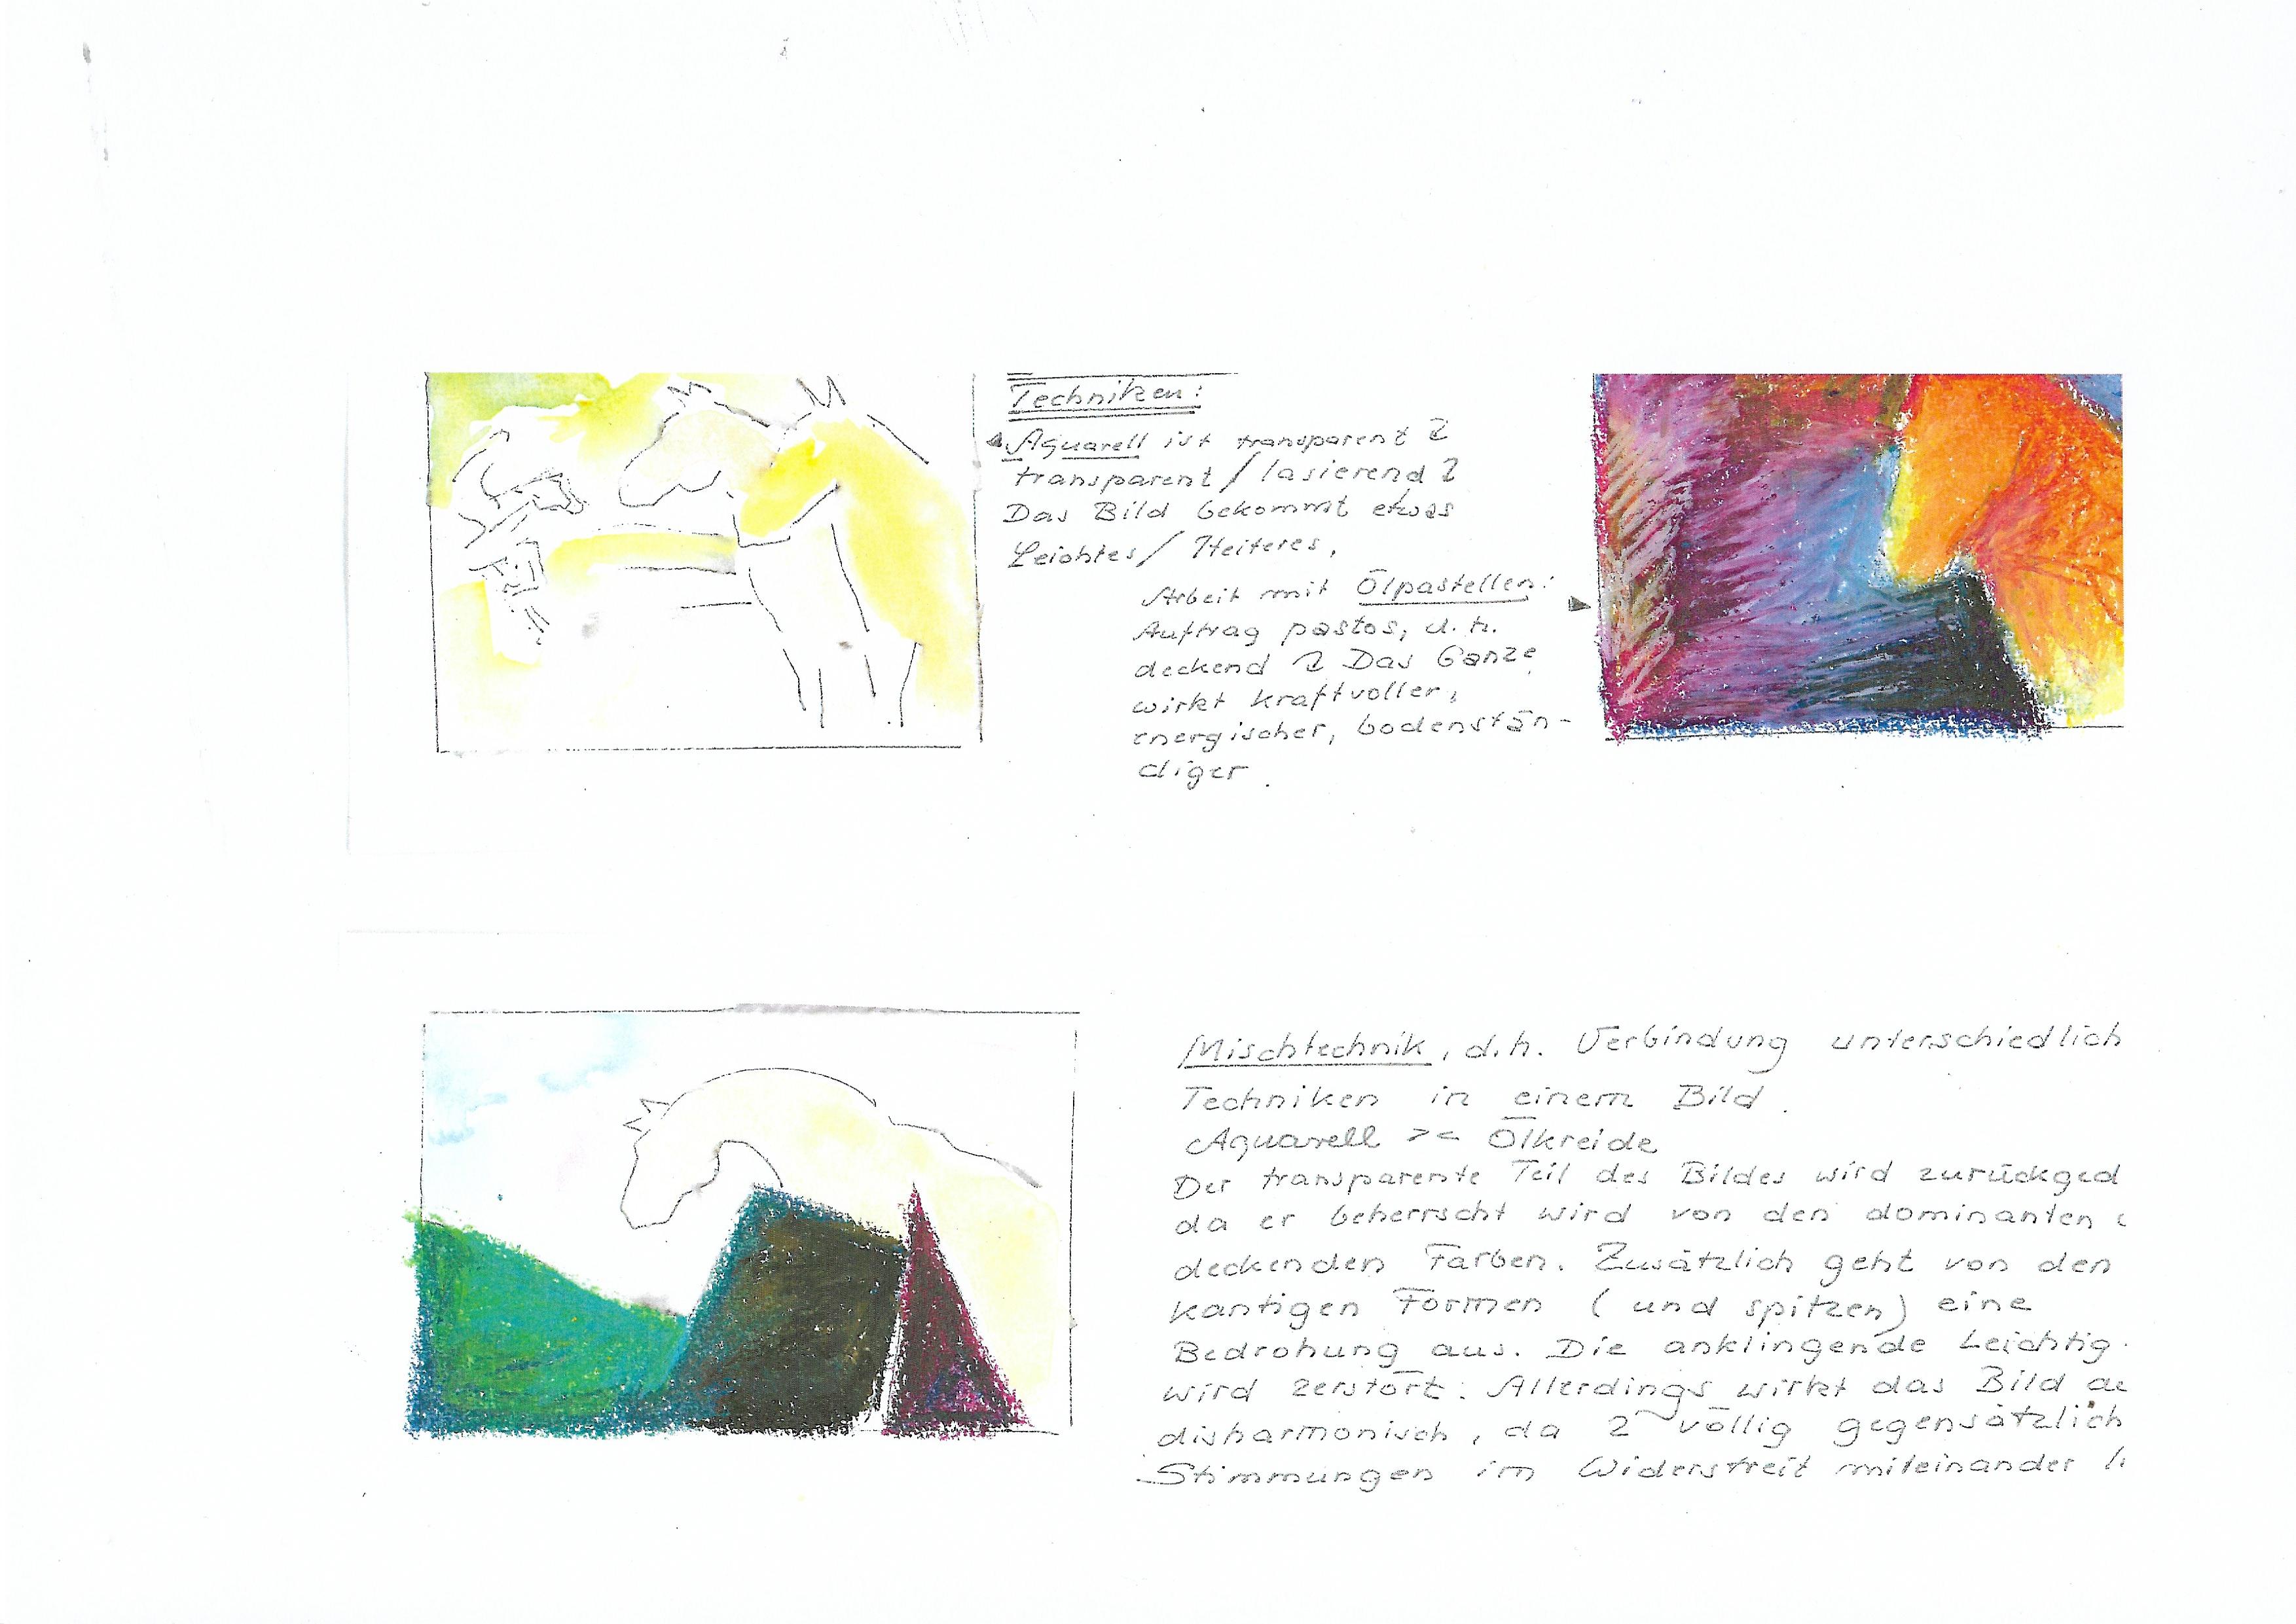 Techniken:
Aquarell ist transparent
transparent / lasierend
Das Bild bekommt etwas
Leichtes / Heiteres,
Arbeit mit Ölpastellen:
Auftrag pastos, d.h.
deckend Das Ganze
wirkt kraftvoller,
energischer, bodenstän-
diger.
Mischtechnik, d.h. Verbindung unterschiedlich
Techniken in einem Bild.
Aquarell >< Ölkreide
Der transparente Teil des Bildes wird zurückged
da er beherrscht wird von den dominanten
deckenden Farben. Zusätzlich geht von den
kantigen Formen (und spitzen) eine
Bedrohung aus. Die anklingende Leichtig
wird zerstört. Allerdings wirkt das Bild
disharmonisch, da 2 völlig gegensätzlich
Stimmungen im Widerstreit miteinander